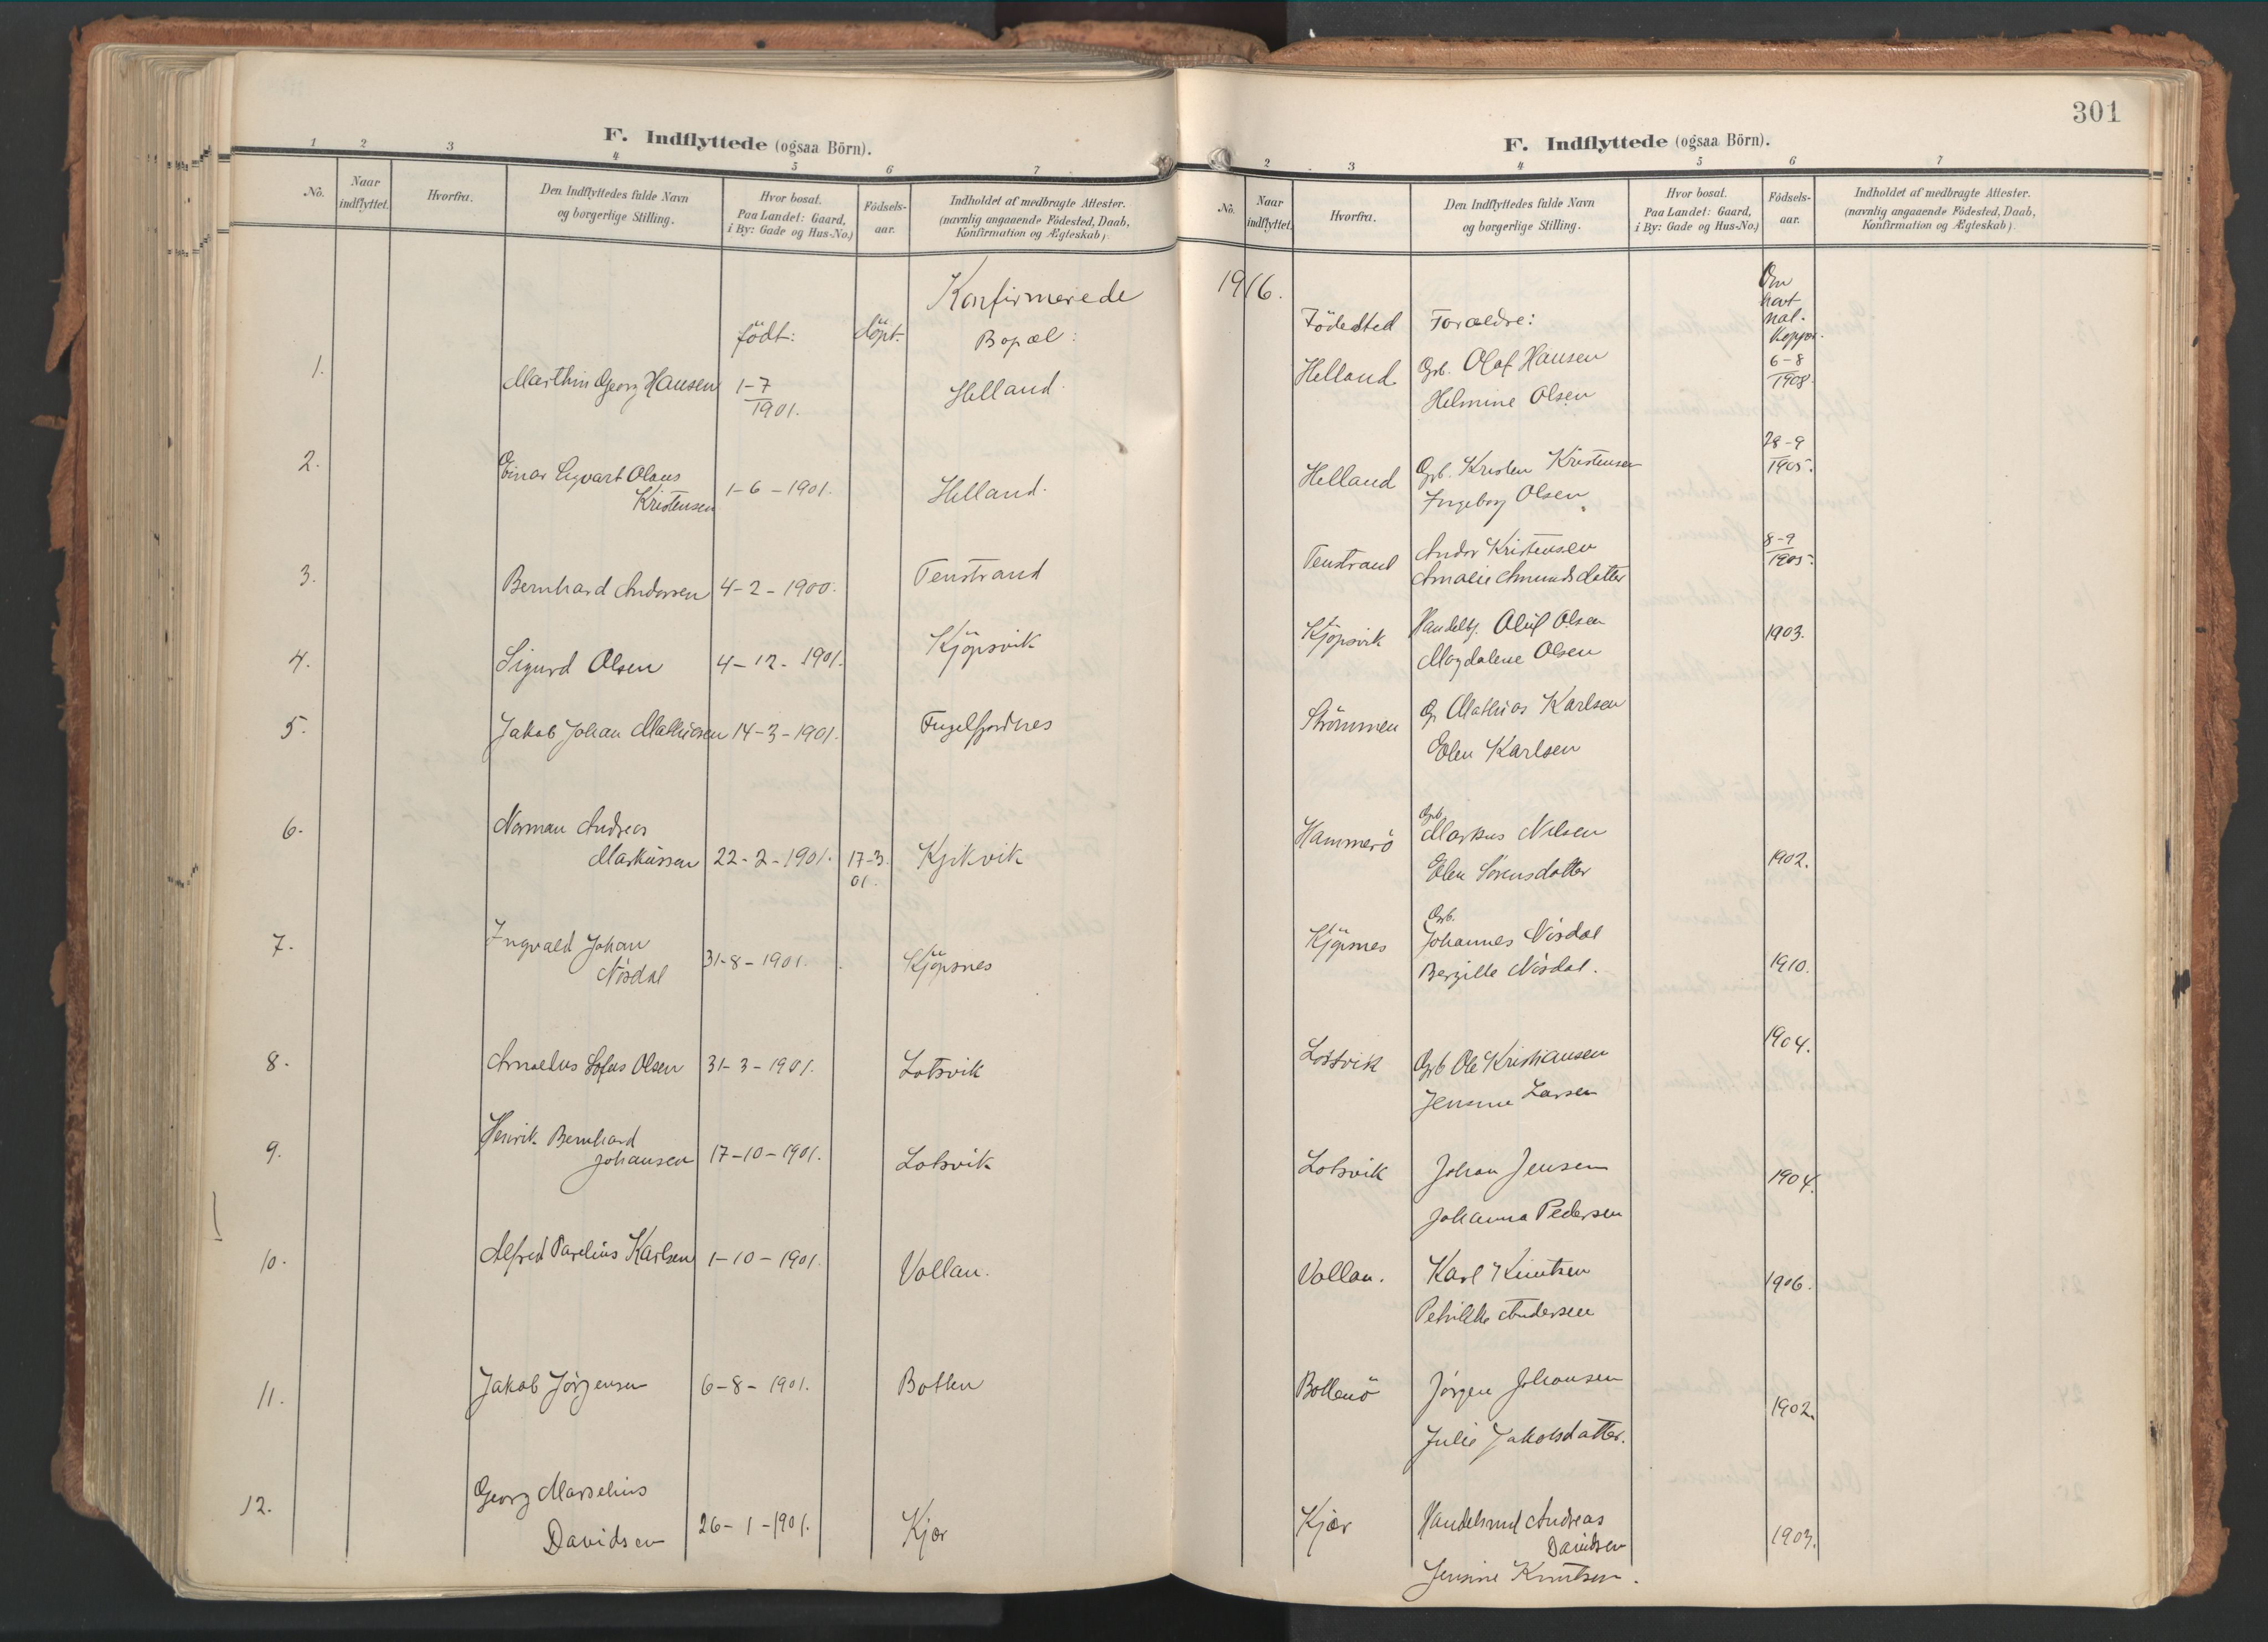 F. Indflyttede (ogsaa Börn).
1 2 3 4 5 6 7
No.
Naar indflyttet.
Hvorfra.
Den Indflyttedes fulde Navn og borgerlige Stilling.
Hvor bosat. Paa Landet: Gaard, i By: Gade og Hus-No.)
Födsels-aar.
Indholdet af medbragte Attester. (navnlig angaaende Födested, Daab, Konfirmation og Ægteskab).
Konfirmerede
födt: döpt. Bopæl:
1. Marthin Georg Hansen 1-7 1901. Helland.
2. Einar Sigvart Olaus
Kristensen 1-6-1901. Helland.
3. Bernhard Andorsen 4-2-1900. Tenstrand
4. Sigurd Olsen 4-12-1901. Kjöpsvik
5. Jakob Johan Mathiasen 14-3-1901. Fugelfjordnes
6. Norman Andreas
Markussen 22-2-1901. 17-3. 01. Kjikvik
7. Ingvald Johan
Nösdal 31-8-1901. Kjöpsnes
8. Amaelus Sofus Olsen 31-3-1901. Lotsvik
9. Henrik Bernhard
Johansen 17-10-1901. Lotsvik
10. Alfred Parelius Karlsen 1-10-1901. Vollan.
11. Jakob Jörgensen 6-8-1901. Botten
12. Georg Marselius
Davidsen 26-1-1901. Kjær
301
F. Indflyttede (ogsaa Börn).
2 3 4 5 6 7
No.
Naar indflyttet.
Hvorfra.
Den Indflyttedes fulde Navn og borgerlige Stilling.
Hvor bosat. Paa Landet: Gaard, i By: Gade og Hus-No.)
Födsels-aar.
Indholdet af medbragte Attester. (navnlig angaaende Födested, Daab, Konfirmation og Ægteskab).
1916.
Födested Forældre:
Om
havt
nat.
Kopper.
Helland Grb. Olaf Hansen 6-8 1908.
Helmine Olsen
Helland Grb. Kristen Kristensen 28-9 1905.
Ingeborg Olsen
Tenstrand Andor Kristensen 8-9 1905.
Amalie Amundsdatter
Kjöpsvik Handelsb. Oluf Olsen 1903.
Magdalene Olsen
Strömmen G. Mathias Karlsen
Elen Karlsen
Hammerö Grb. Markus Nilsen
Elen Sörensdatter 1902.
Kjöpsnes Grb. Johannes Nösdal
Bergitte Nösdal. 1910.
Lotsvik Grb Ole Kristiansen 1904.
Jensine Larsen
Lotsvik Johan Jensen 1904.
Johanna Pedersen
Vollan. Karl Knutsen 1906.
Petrikke Andersen
Bottenö Jörgen Johansen 1902.
Julie Jakobsdatter.
Kjær Handelsmd Andreas
Davidsen 1903.
Jensine Knutsen.